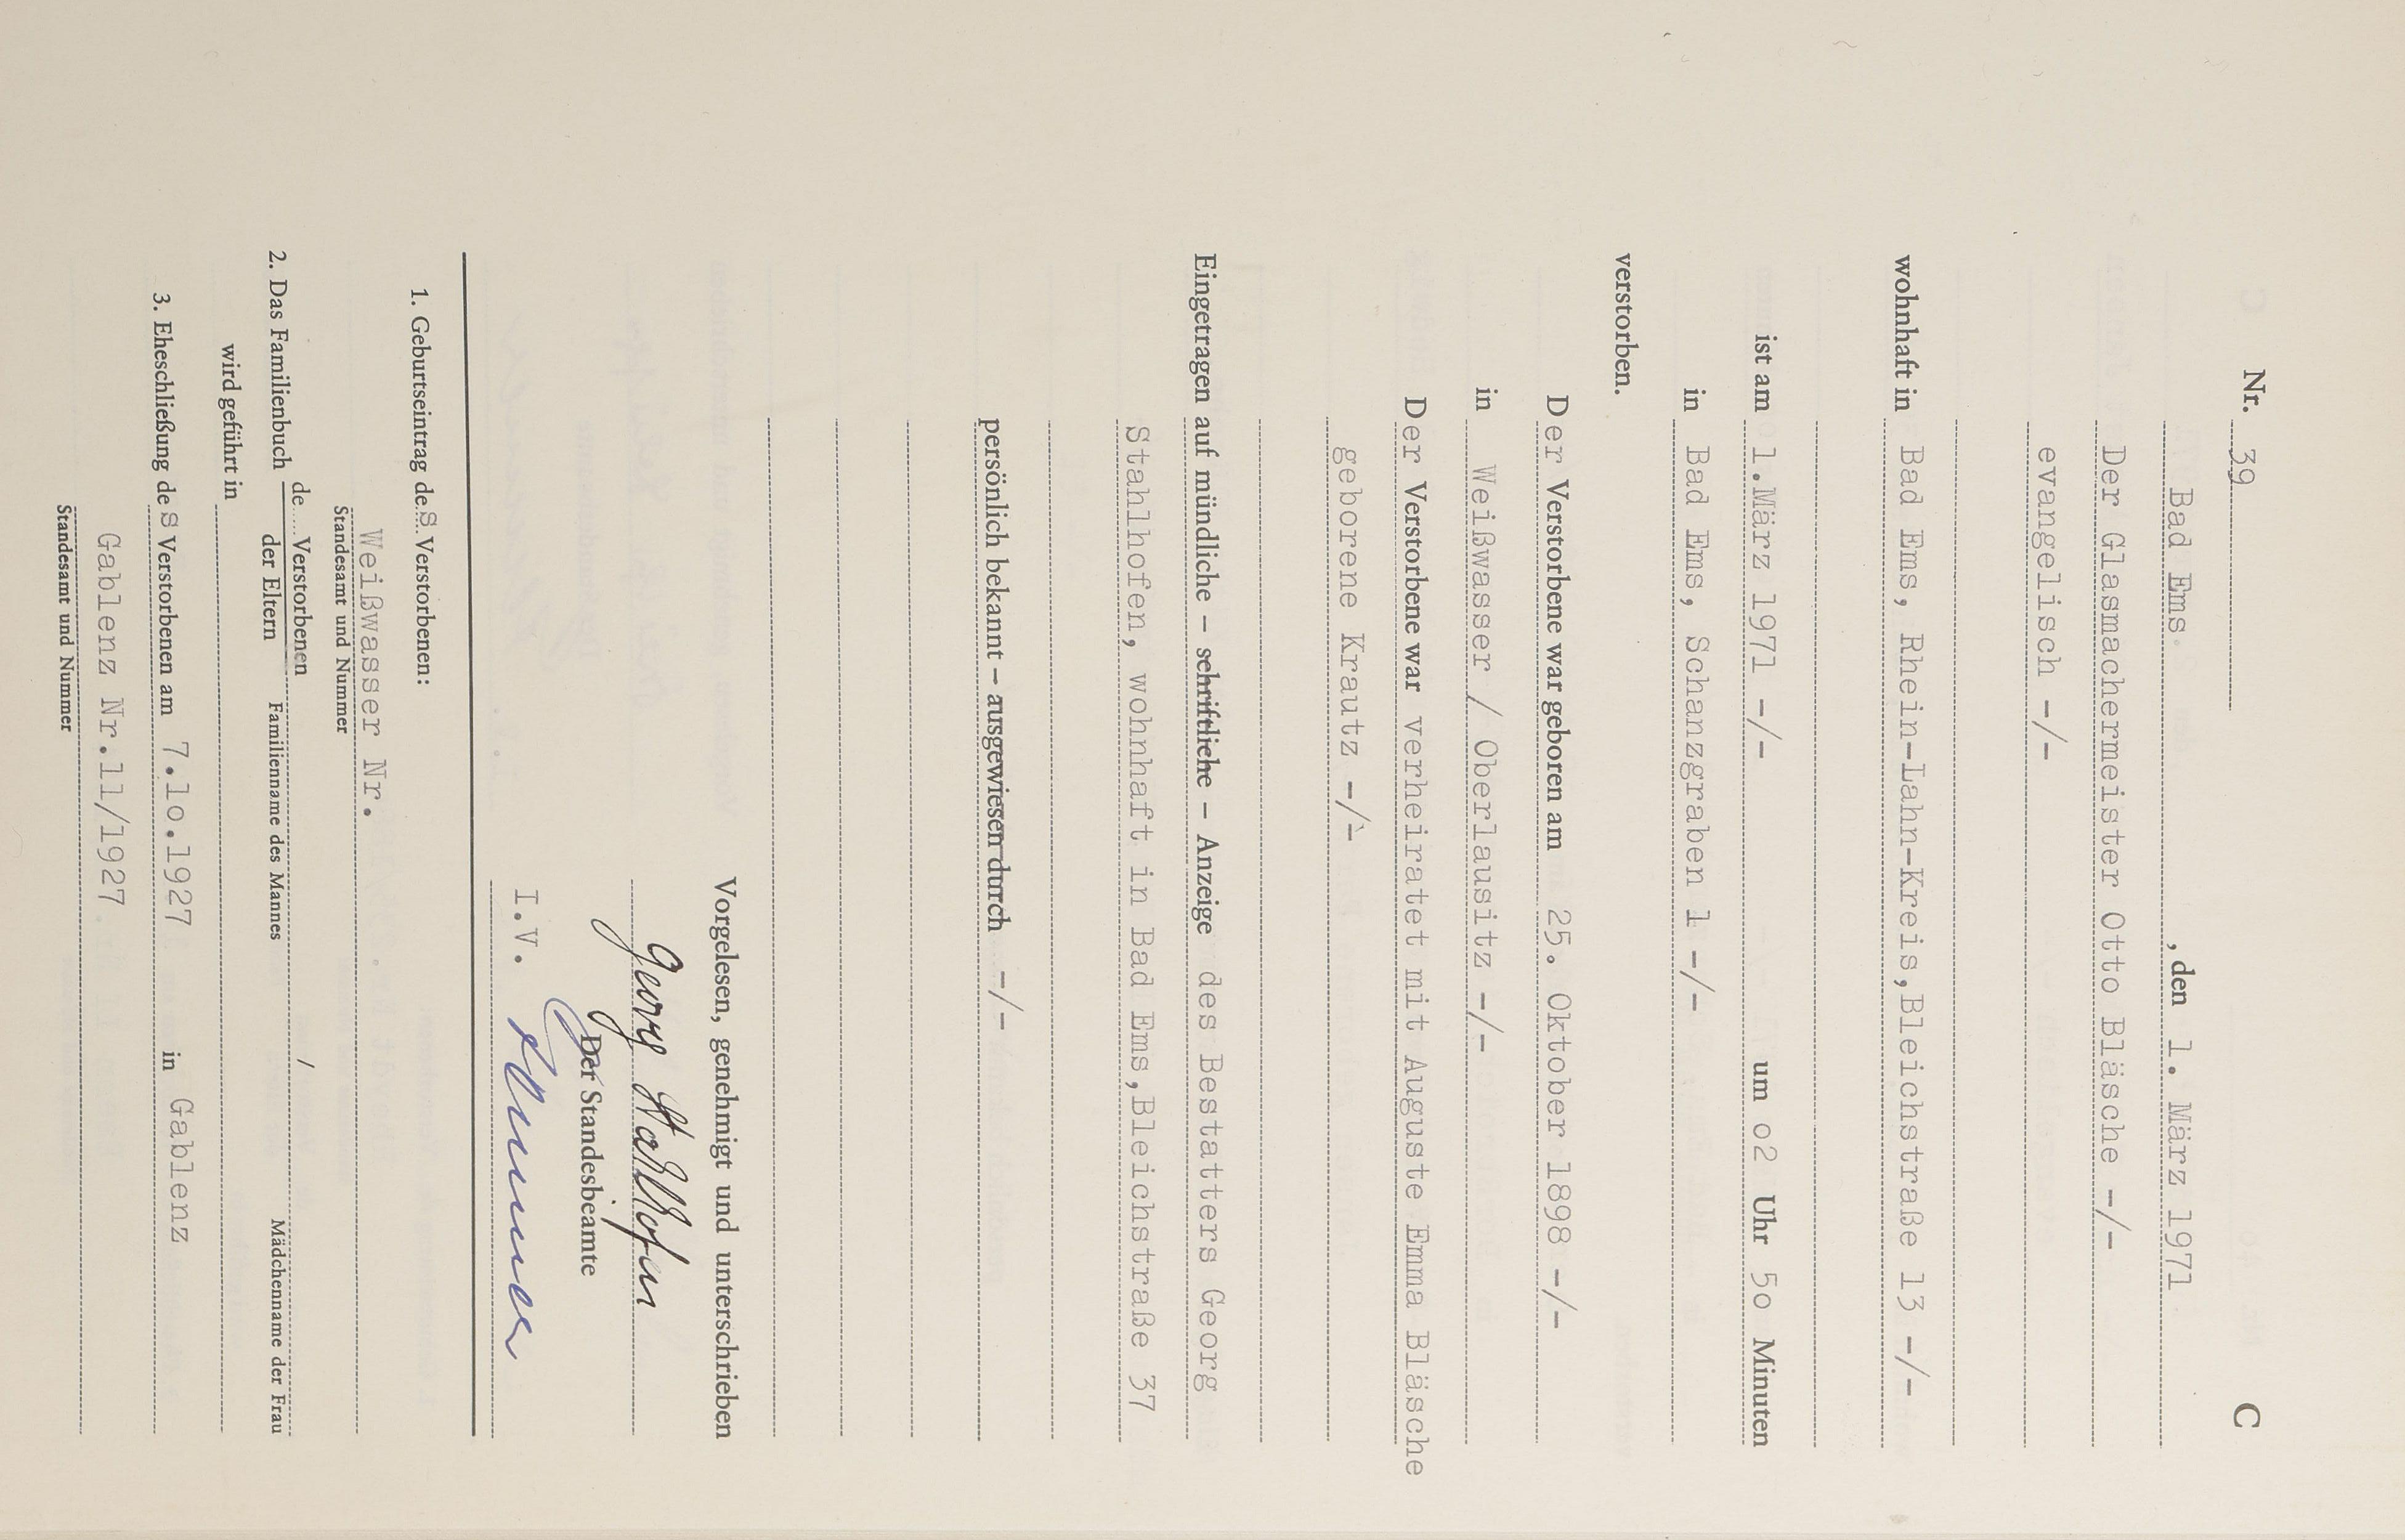 C
Nr. 39
Bad Ems, den 1. März 1971
Der Glasmachermeister Otto Bläsche -/-
evangelisch -/-
wohnhaft in Bad Ems, Rhein-Lahn-Kreis,Bleichstraße 13 -/-
ist am 1.März 1971 -/- um o2 Uhr 5o Minuten
in Bad Ems, Schanzgraben 1 -/-
verstorben.
Der Verstorbene war geboren am 25. Oktober 1898 -/-
in Weißwasser / Oberlausitz -/-
Der Verstorbene war verheiratet mit Auguste Emma Bläsche
geborene Krautz -/-
Eingetragen auf mündliche – schriftliche – Anzeige des Bestatters Georg
Stahlhofen, wohnhaft in Bad Ems,Bleichstraße 37
persönlich bekannt – ausgewiesen durch -/-
Vorgelesen, genehmigt und unterschrieben
Georg Stahlhofen
Der Standesbeamte
I.V.
1. Geburtseintrag des Verstorbenen:
Weißwasser Nr.
Standesamt und Nummer
de Verstorbenen /
2. Das Familienbuch der Eltern Familienname des Mannes Mädchenname der Frau
wird geführt in
3. Eheschließung des Verstorbenen am 7.1o.1927 in Gablenz
Gablenz Nr.11/1927
Standesamt und Nummer